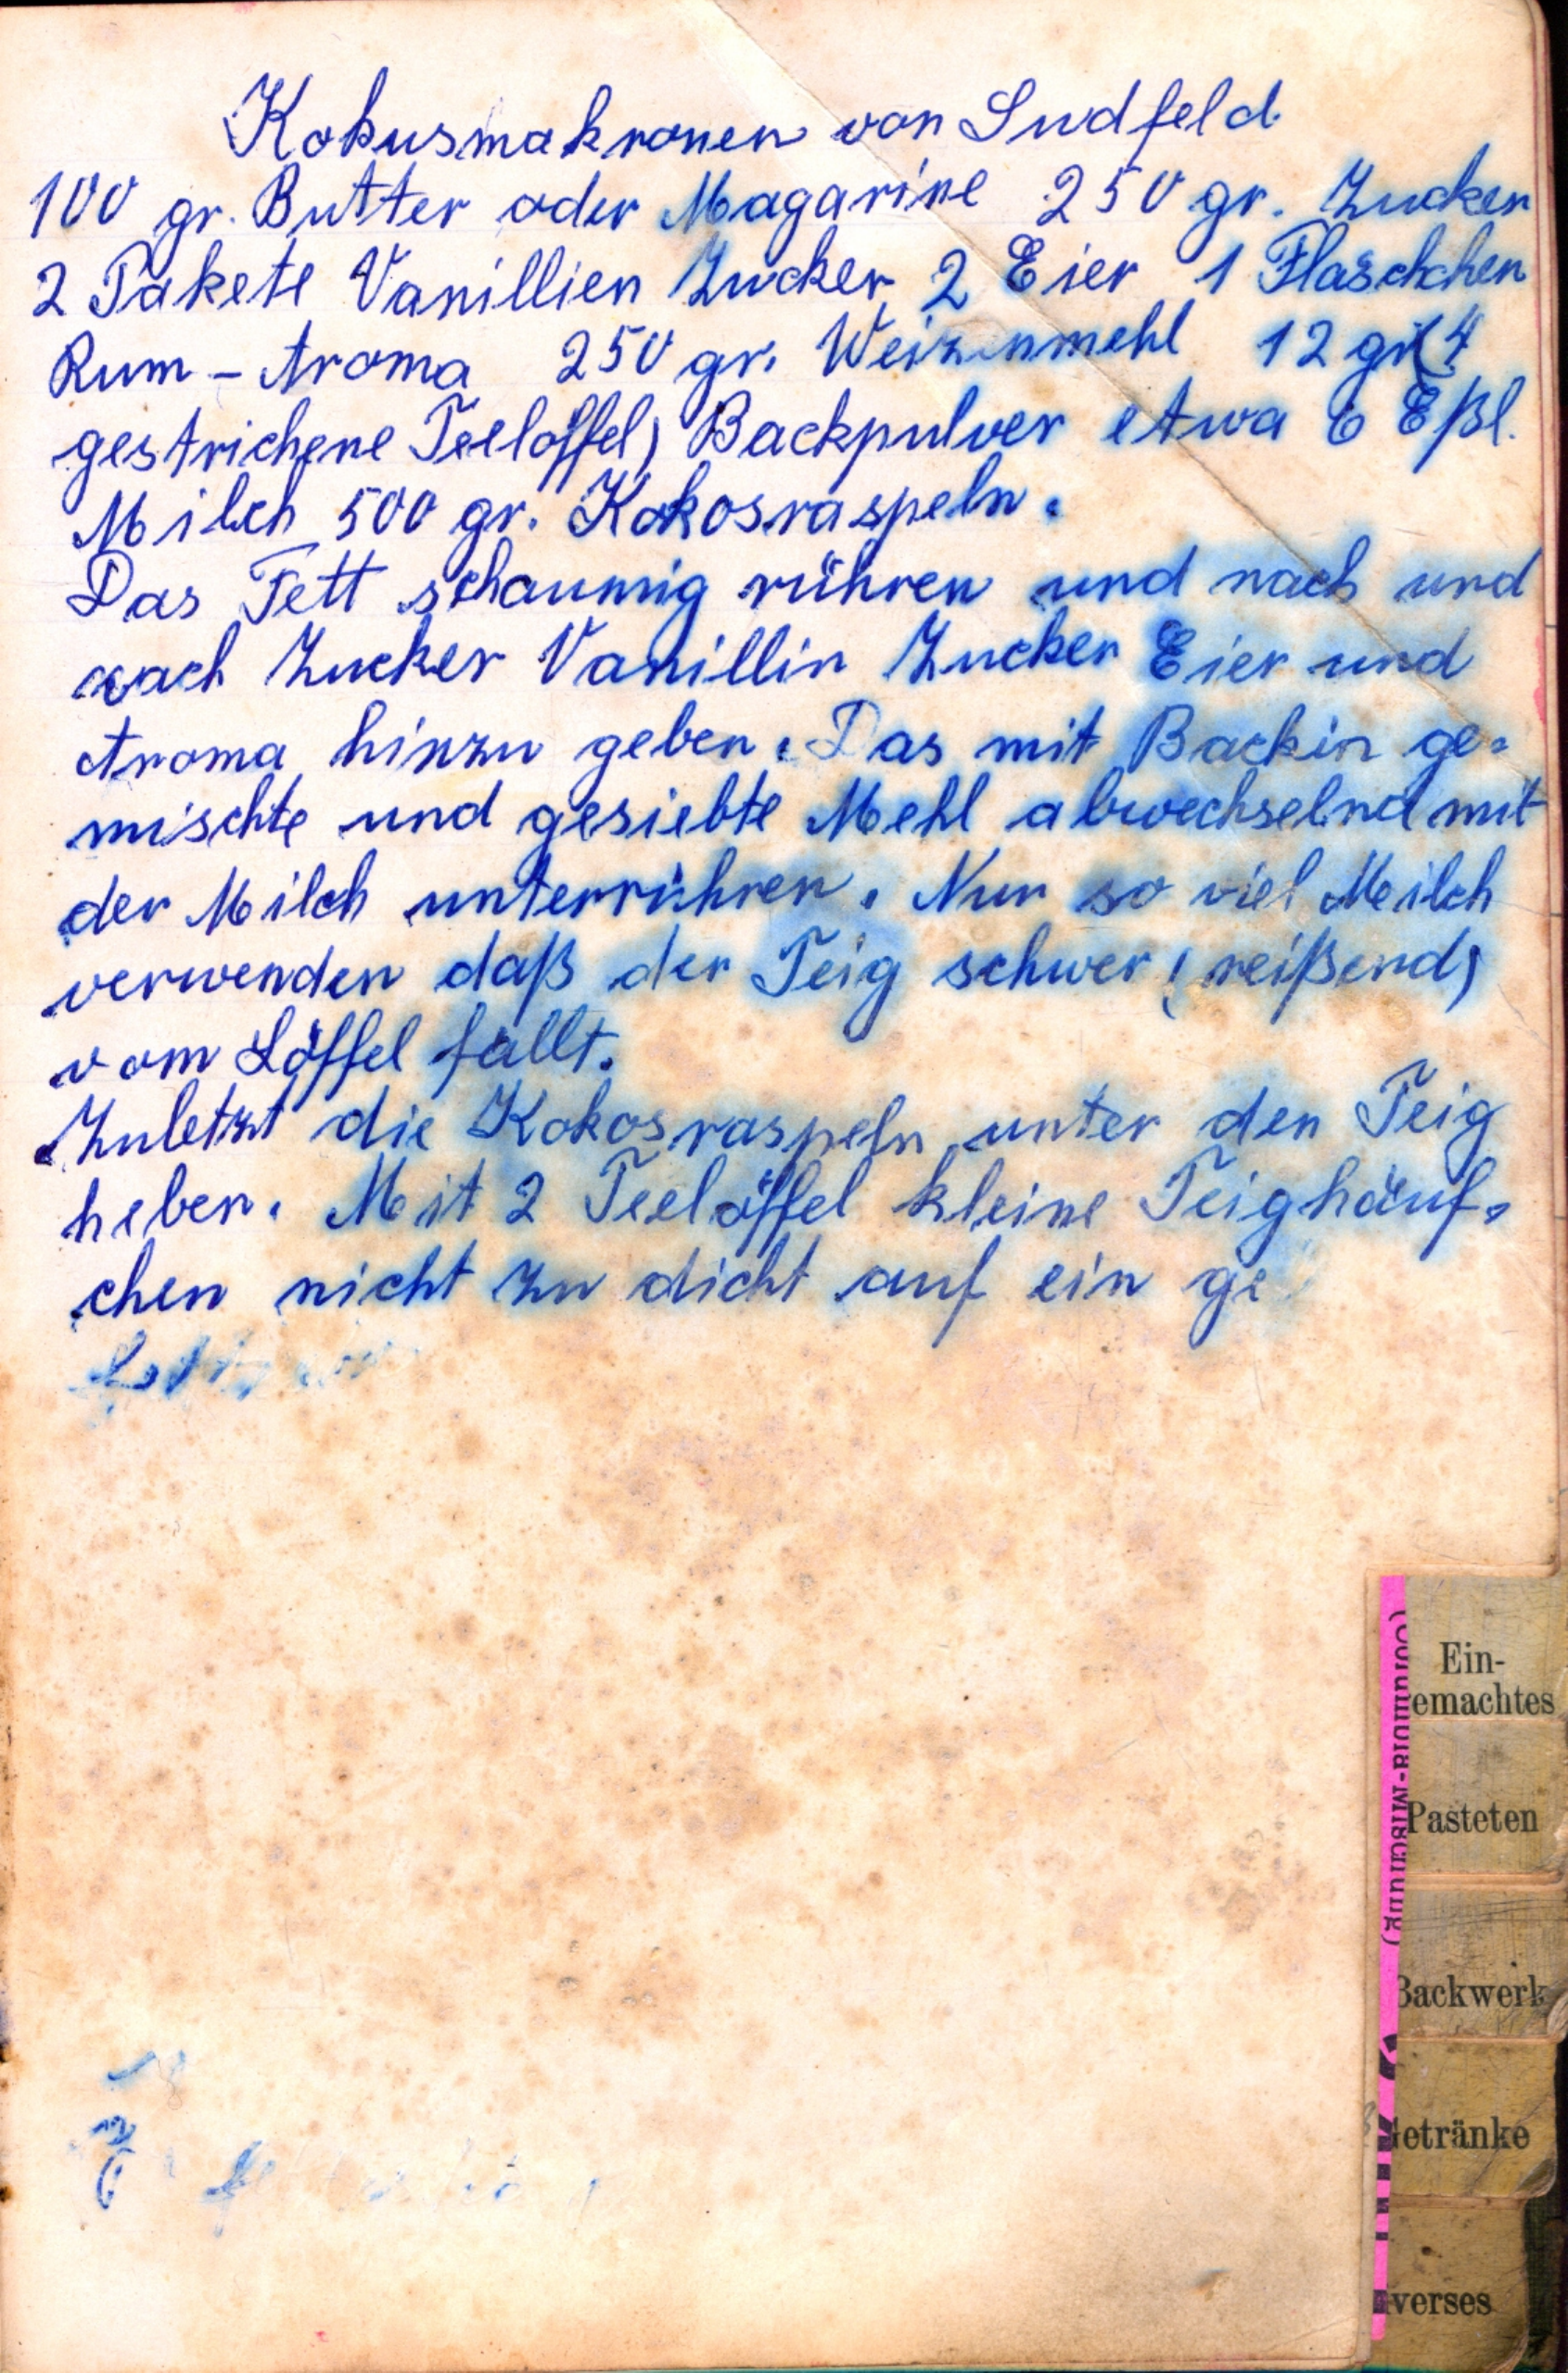 Kokusmakronen von Sudfeld
100 gr. Butter oder Magarine 250 gr. Zucker
2 Pakete Vanillien Zucker 2 Eier 1 Fläschchen
Rum - Aroma 250 gr. Weizenmehl 12 gr (4
gestrichene Teelöffel) Backpulver etwa 6 Eßl.
Milch 500 gr. Kokosraspeln.
Das Fett schaumig rühren und nach und
nach Zucker Vanillin Zucker Eier und
Aroma hinzu geben. Das mit Backin ge=
mischte und gesiebte Mehl abwechselnd mit
der Milch unterrühren. Nur so viel Milch
verwenden daß der Teig schwer (reißend)
vom Löffel fällt.
Zuletzt die Kokosraspeln unter den Teig
heben. Mit 2 Teelöffel kleine Teighäuf=
chen nicht zu dicht auf ein ge
Ein-
emachtes
Pasteten
Backwerk
Getränke
verses